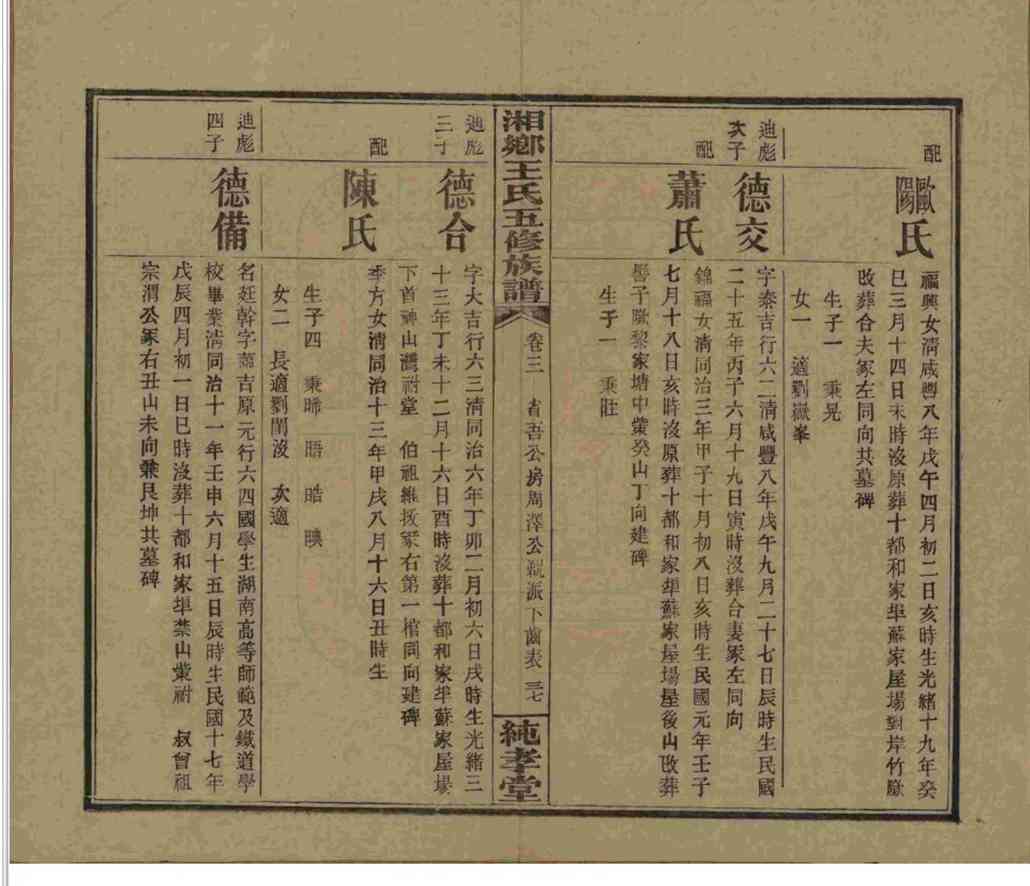 配
歐陽氏
福興女清咸豐八年戊午四月初二日亥時生光緒十九年癸
巳三月十四日未時沒原葬十都和家埠蘇家屋場對岸竹
改葬合夫冢左同向共墓碑
生子一 秉晃
女一 適劉嶽峯
迪彪
次子
德交
字泰吉行六二清咸豐八年戊午九月二十七日辰時生民國
二十五年丙子六月十九日寅時沒葬合妻冢左同向
配
蕭氏
錦福女清同治三年甲子十月初八日亥時生民國元年壬子
七月十八日亥時沒原葬十都和家埠蘇家屋場屋後山改葬
子 黎家塘中 癸山丁向建碑
生子一 秉
湘鄉王氏五修族譜
卷三 省吾公房周澤公親派下齒表 三七
純孝堂
迪彪
三子
德合
字大吉行六三清同治六年丁卯二月初六日戌時生光緒三
十三年丁未十二月十六日酉時沒葬十都和家埠蘇家屋場
下首神山灣祔堂 伯祖維 冢右第一棺同向建碑
配
陳氏
季方女清同治十三年甲戌八月十六日丑時生
生子四 秉晞 晤 皓 映
女二 長適劉閏 次適
迪彪
四子
德備
名廷幹字 吉原元行六四國學生湖南高等師範及鐵道學
校畢業清同治十一年壬申六月十五日辰時生民國十七年
戊辰四月初一日巳時沒葬十都和家埠禁山 祔 叔曾祖
宗渭公冢右丑山未向兼艮坤共墓碑